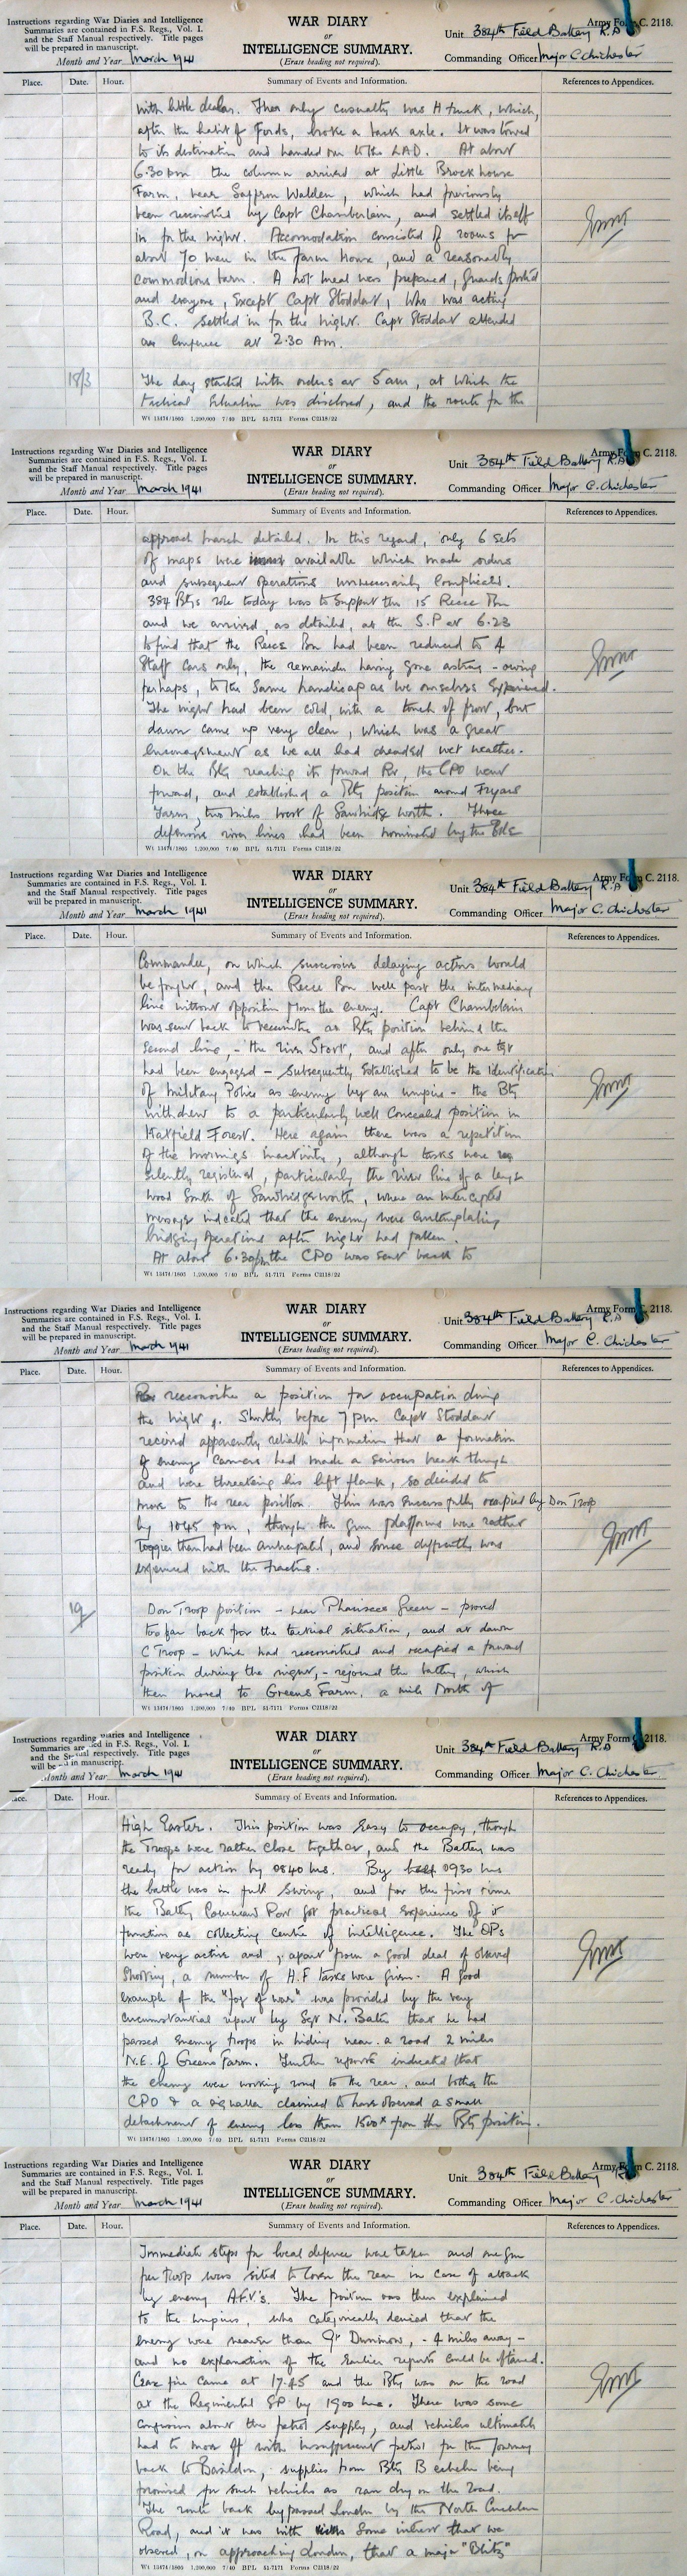 Instructions regarding War Diaries and Intelligence
Summaries are contained in F.S. Regs., Vol. I.
and the Staff Manual respectively. Title pages
will be prepared in manuscript.
Month and Year March 1941
WAR DIARY
or
INTELLIGENCE SUMMARY.
(Erase heading not required).
Army Form C. 2118.
Unit 384th Field Battery R.A
Commanding Officer Major C. Chichester
Place. Date. Hour. Summary of Events and Information. References to Appendices.
with little delay. The only casualty was H truck, which,
after the habit of Fords, broke a back axle. It was towed
to its destination and handed over to the LAD. At about
6.30 pm the column arrived at Little Brockhouse
Farm, near Saffron Walden, which had previously
been reconnoitred by Capt Chamberlain, and settled itself
in for the night. Accomodation consisted of rooms for
about 70 men in the farm house, and a reasonably
commodious barn. A hot meal was prepared, guards posted
and everyone, except Capt Stoddart, who was acting
B.C. settled in for the night. Capt Stoddart attended
a conference at 2.30 Am.
18/3
The day started with orders at 5 am, at which the
tactical situation was disclosed, and the route for the
Wt 13474/1805 1,200,000 7/40 BPL 51-7171 Forms C2118/22
Instructions regarding War Diaries and Intelligence
Summaries are contained in F.S. Regs., Vol. I.
and the Staff Manual respectively. Title pages
will be prepared in manuscript.
Month and Year March 1941
WAR DIARY
or
INTELLIGENCE SUMMARY.
(Erase heading not required).
Army Form C. 2118.
Unit 384th Field Battery R.A
Commanding Officer Major C. Chichester
Place. Date. Hour. Summary of Events and Information. References to Appendices.
approach march detailed. In this regard, only 6 sets
of maps were available which made orders
and subsequent operations unnecessarily complicated.
384 Btys role today was to support the 15 Recce Bn
and we arrived, as detailed, at the S.P at 6.23
to find that the Recce Bn had been reduced to 4
Staff cars only, the remainder having gone astray - owing
perhaps, to the same handicap as we ourselves experienced.
The night had been cold, with a touch of frost, but
dawn came up very clear, which was a great
encouragement as we all had dreaded wet weather.
On the Bty reaching its forward RV, the CPO went
forward, and established a Bty position around Fryars
Farm, two miles west of Sawbridgeworth. Three
defensive river lines had been nominated by the Bde
Wt 13474/1805 1,200,000 7/40 BPL 51-7171 Forms C2118/22
Instructions regarding War Diaries and Intelligence
Summaries are contained in F.S. Regs., Vol. I.
and the Staff Manual respectively. Title pages
will be prepared in manuscript.
Month and Year March 1941
WAR DIARY
or
INTELLIGENCE SUMMARY.
(Erase heading not required).
Army Form C. 2118.
Unit 384th Field Battery R.A
Commanding Officer Major C. Chichester
Place. Date. Hour. Summary of Events and Information. References to Appendices.
Commander, on which successive delaying actions would
be fought, and the Recce Bn well past the intermediary
line without opposition from the enemy. Capt Chamberlain
was sent back to reconnoitre a Bty position behind the
second line, - the river Stort, and after only one tgt
had been engaged - subsequently established to be the identification
of Military Police as enemy by an umpire - the Bty
withdrew to a particularly well concealed position in
Hatfield Forest. Here again there was a repetition
of the mornings inactivity, although tasks were
silently registered, particularly the river line of a large
wood South of Sawbridgeworth, where an intercepted
message indicated that the enemy were contemplating
bridging operations after night had fallen.
At about 6.30 pm the CPO was sent back to
Wt 13474/1805 1,200,000 7/40 BPL 51-7171 Forms C2118/22
Instructions regarding War Diaries and Intelligence
Summaries are contained in F.S. Regs., Vol. I.
and the Staff Manual respectively. Title pages
will be prepared in manuscript.
Month and Year March 1941
WAR DIARY
or
INTELLIGENCE SUMMARY.
(Erase heading not required).
Army Form C. 2118.
Unit 384th Field Battery R.A
Commanding Officer Major C. Chichester
Place. Date. Hour. Summary of Events and Information. References to Appendices.
reconnoitre a position for occupation during
the night. Shortly before 7 pm Capt Stoddart
received apparently reliable information that a formation
of enemy carriers had made a serious break through
and were threatening his left flank, so decided to
move to the rear position. This was successfully occupied by Don Troop
by 1045 pm, though the gun platforms were rather
boggier than had been anticipated, and some difficulty was
experienced with the tractors.
19
Don Troop position - near Pharisees Green - proved
too far back for the tactical situation, and at dawn
C Troop - which had reconnoitred and occupied a forward
position during the night, - rejoined the battery, which
then moved to Greens Farm, a mile North of
Wt 13474/1805 1,200,000 7/40 BPL 51-7171 Forms C2118/22
Instructions regarding War Diaries and Intelligence
Summaries are contained in F.S. Regs., Vol. I.
and the Staff Manual respectively. Title pages
will be prepared in manuscript.
Month and Year March 1941
WAR DIARY
or
INTELLIGENCE SUMMARY.
(Erase heading not required).
Army Form C. 2118.
Unit 384th Field Battery R.A
Commanding Officer Major C. Chichester
Place. Date. Hour. Summary of Events and Information. References to Appendices.
High Easter. This position was easy to occupy, though
the Troops were rather close together, and the Battery was
ready for action by 0840 hrs. By 0930 hrs
the battle was in full swing, and for the first time
the Battery Command Post got practical experience of its
function as collecting centre of intelligence. The OPs
were very active and, apart from a good deal of observed
shooting, a number of H.F tasks were given. A good
example of the "fog of war" was provided by the very
circumstantial report by Sgt N. Bath that he had
passed enemy troops in hiding near a road 2 miles
N.E. of Greens Farm. Further reports indicated that
the enemy were working round to the rear, and both the
CPO & a signaller claimed to have observed a small
detachment of enemy less than 1500x from the Bty position.
Wt 13474/1805 1,200,000 7/40 BPL 51-7171 Forms C2118/22
Instructions regarding War Diaries and Intelligence
Summaries are contained in F.S. Regs., Vol. I.
and the Staff Manual respectively. Title pages
will be prepared in manuscript.
Month and Year March 1941
WAR DIARY
or
INTELLIGENCE SUMMARY.
(Erase heading not required).
Army Form C. 2118.
Unit 384th Field Battery R.A
Commanding Officer Major C. Chichester
Place. Date. Hour. Summary of Events and Information. References to Appendices.
Immediate steps for local defence were taken and one gun
per troop was sited to cover the rear in case of attack
by enemy A.F.V's. The position was then explained
to the umpires, who categorically denied that the
enemy were nearer than Gt Dunmow, - 4 miles away -
and no explanation of the earlier reports could be obtained.
Cease fire came at 17.45 and the Bty was on the road
at the Regimental SP by 1900 hrs. There was some
confusion about the petrol supply, and vehicles ultimately
had to move off with insufficient petrol for the journey
back to Basildon, supplies from Bty B echelon being
promised for such vehicles as ran dry on the road.
The route back bypassed London by the North Circular
Road, and it was with some interest that we
observed, on approaching London, that a major "Blitz"
Wt 13474/1805 1,200,000 7/40 BPL 51-7171 Forms C2118/22